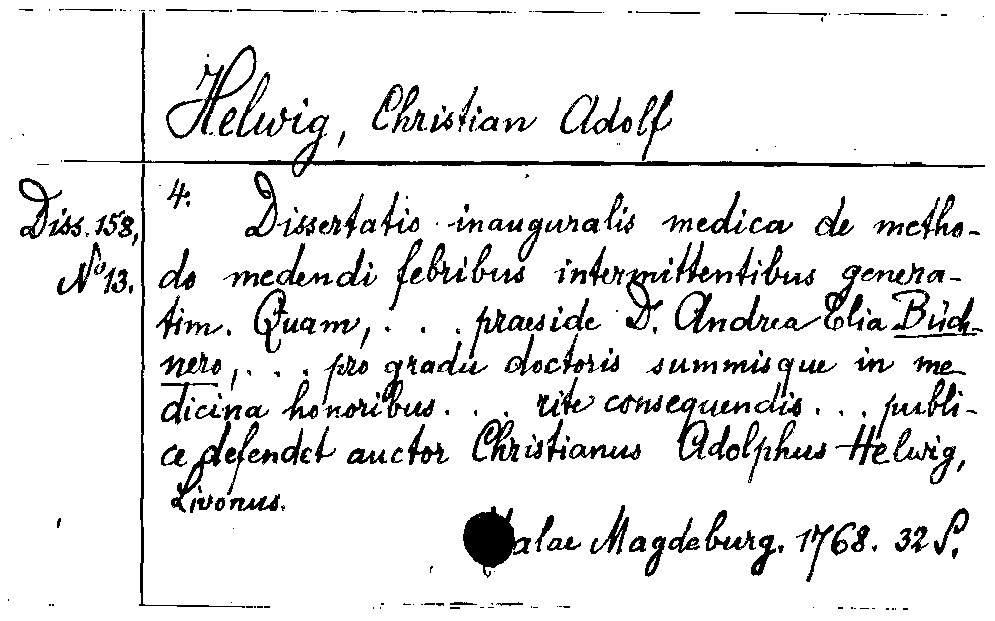 Helwig, Christian Adolf
Diss. 158,
No 13.
4.
Dissertatio inauguralis medica de metho-
do medendi febribus intermittentibus genera-
tim. Quam, . . . praeside D. Andrea Elia Büch-
nero, . . . pro gradu doctoris summisque in me-
dicina honoribus . . . rite consequendis . . . publi-
ce defendet auctor Christianus Adolphus Helwig,
Livonus.
Halae Magdeburg. 1768. 32 S.